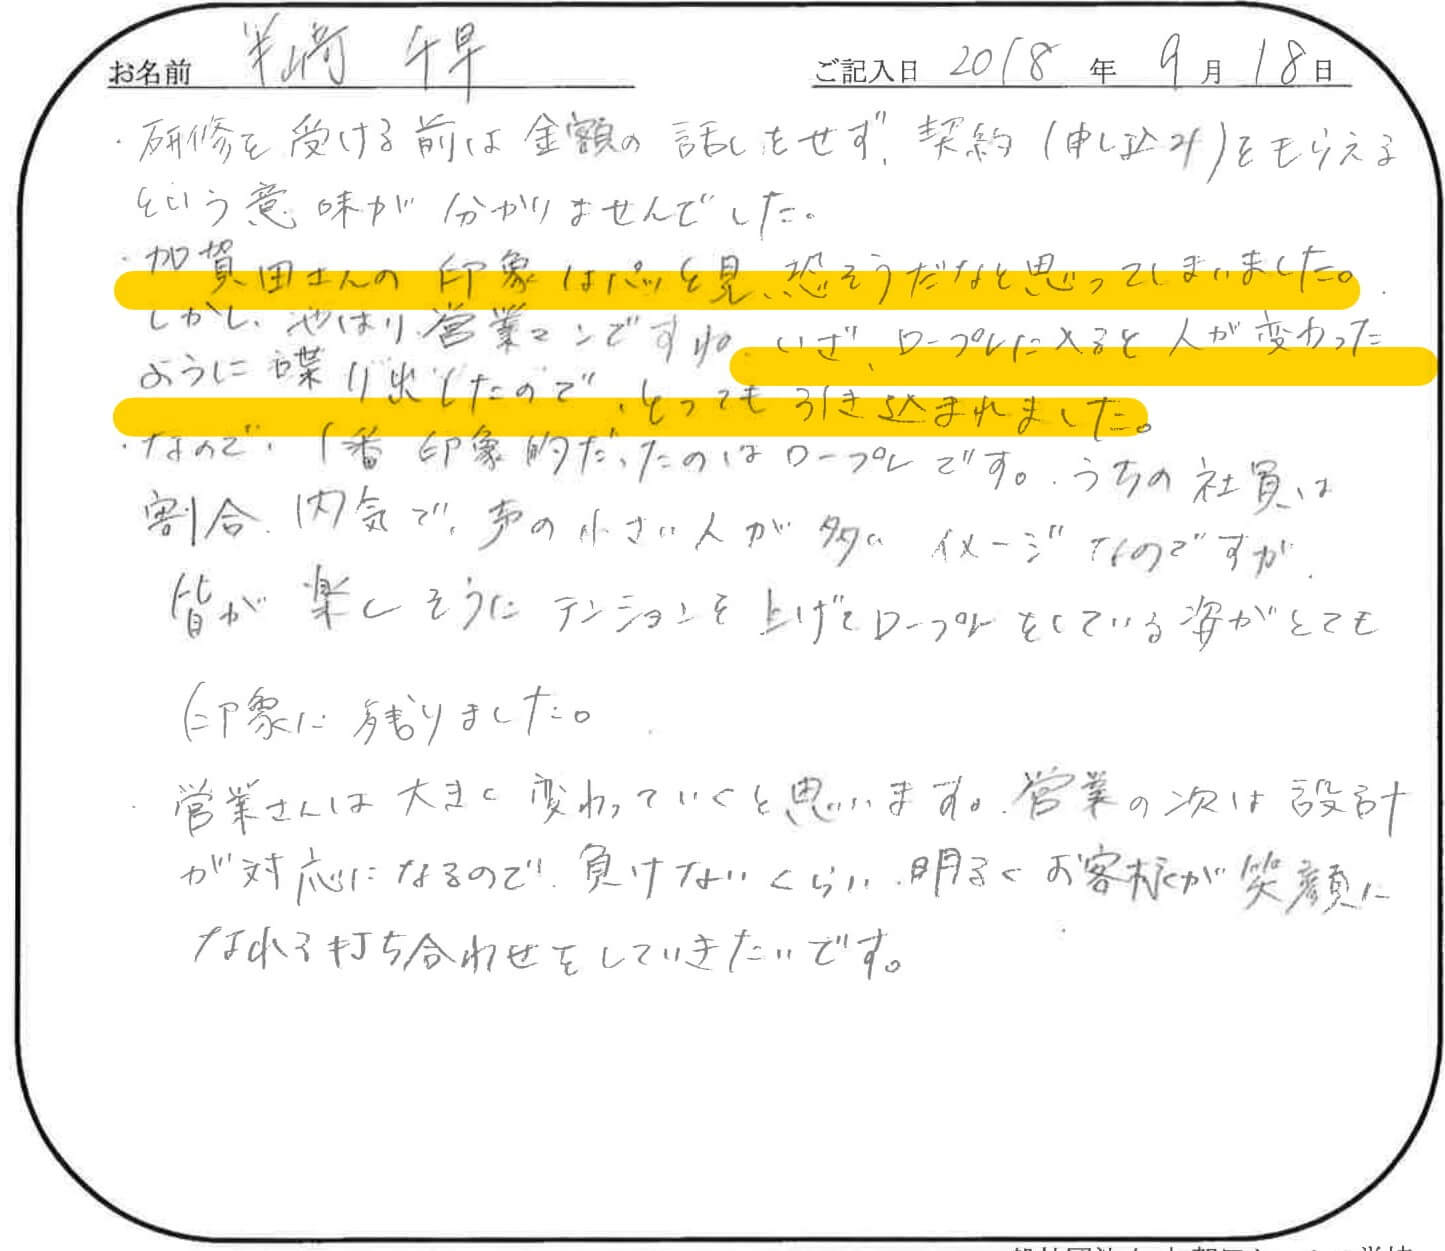 お名前 半崎 千早 ご記入日 2018年9月18日
・研修を受ける前は金額の話しをせず、契約(申し込み)をもらえる
という意味が分かりませんでした。
・加賀田さんの印象はパッと見、恐そうだなと思ってしまいました。
しかし、やはり営業マンですね。いざ、ロープレに入ると人が変わった
ように喋り出したので、とっても引き込まれました。
・なので、1番印象的だったのはロープレです。うちの社員は
割合、内気で、声の小さい人が多いイメージなのですが、
皆が楽しそうにテンションを上げてロープレをしている姿がとても
印象に残りました。
・営業さんは大きく変わっていくと思います。営業の次は設計
が対応になるので、負けないくらい、明るくお客様が笑顔に
なれる打ち合わせをしていきたいです。